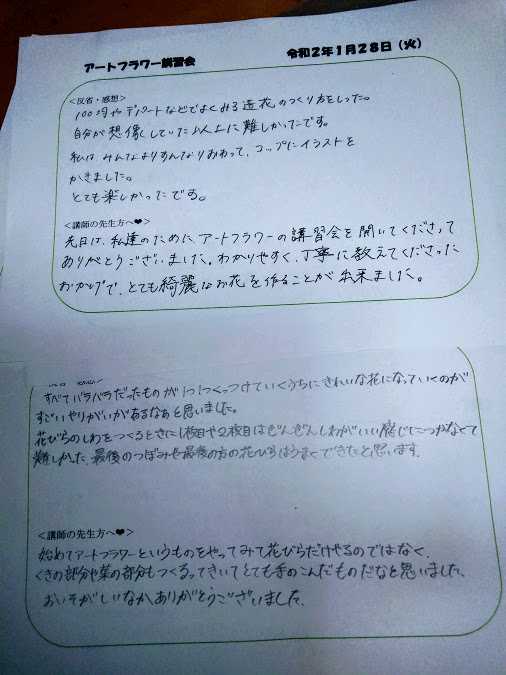 アートフラワー講習会 令和2年1月28日（火）
＜反省・感想＞
100均やデパートなどでよくみる造花のつくり方をしった。
自分が想像していた以上に難しかったです。
私はみんなよりすんなりおわって、コップにイラストを
かきました。
とても楽しかったです。
＜講師の先生方へ❤＞
先日は、私達のために、アートフラワーの講習会を開いてくださって
ありがとうございました。わかりやすく、丁寧に教えてくださった
おかげで、とても綺麗なお花を作ることが出来ました。
すべてバラバラだったものが1つ1つくっつけていくうちにきれいな花になっていくのが
すごいやりがいがあるなぁと思いました。
花びらのしわをつくるときに1枚目や2枚目はぜんぜんしわがいい感じにつかなくて
難しかった。最後のつぼみや最後の方の花びらはうまくできたと思います。
＜講師の先生方へ❤＞
始めてアートフラワーというものをやってみて花びらだけやるのではなく、
くきの部分や葉の部分もつくるってきいてとても手のこんだものだなと思いました。
おいそがしいなかありがとうございました。